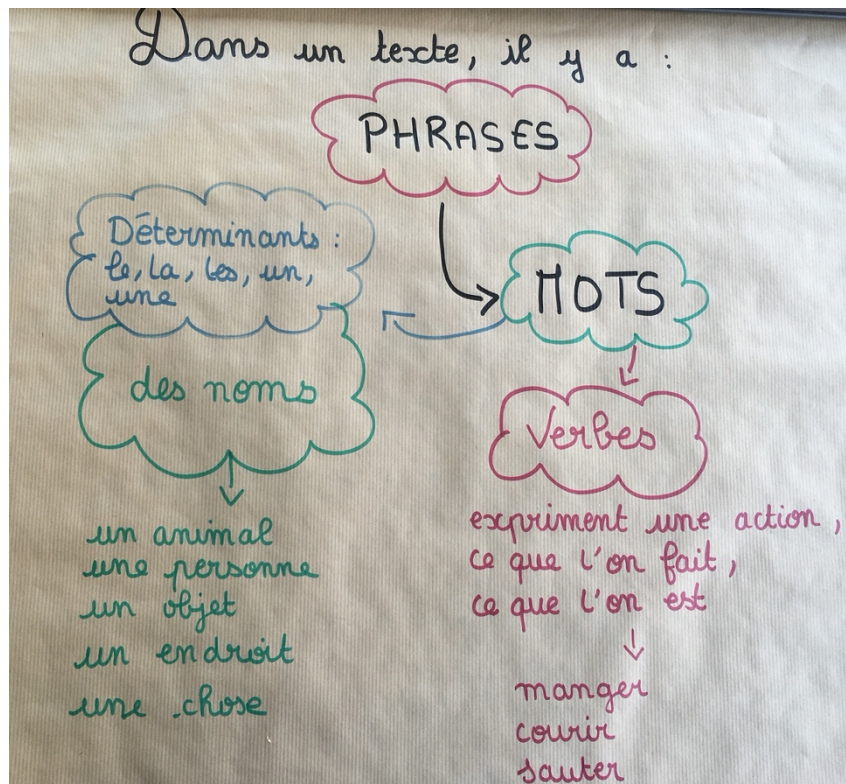 Dans un texte, il y a :
PHRASES
Déterminants :
le, la, les, un,
une
MOTS
des noms
Verbes
un animal
une personne
un objet
un endroit
une chose
expriment une action,
ce que l'on fait,
ce que l'on est
manger
courir
sauter